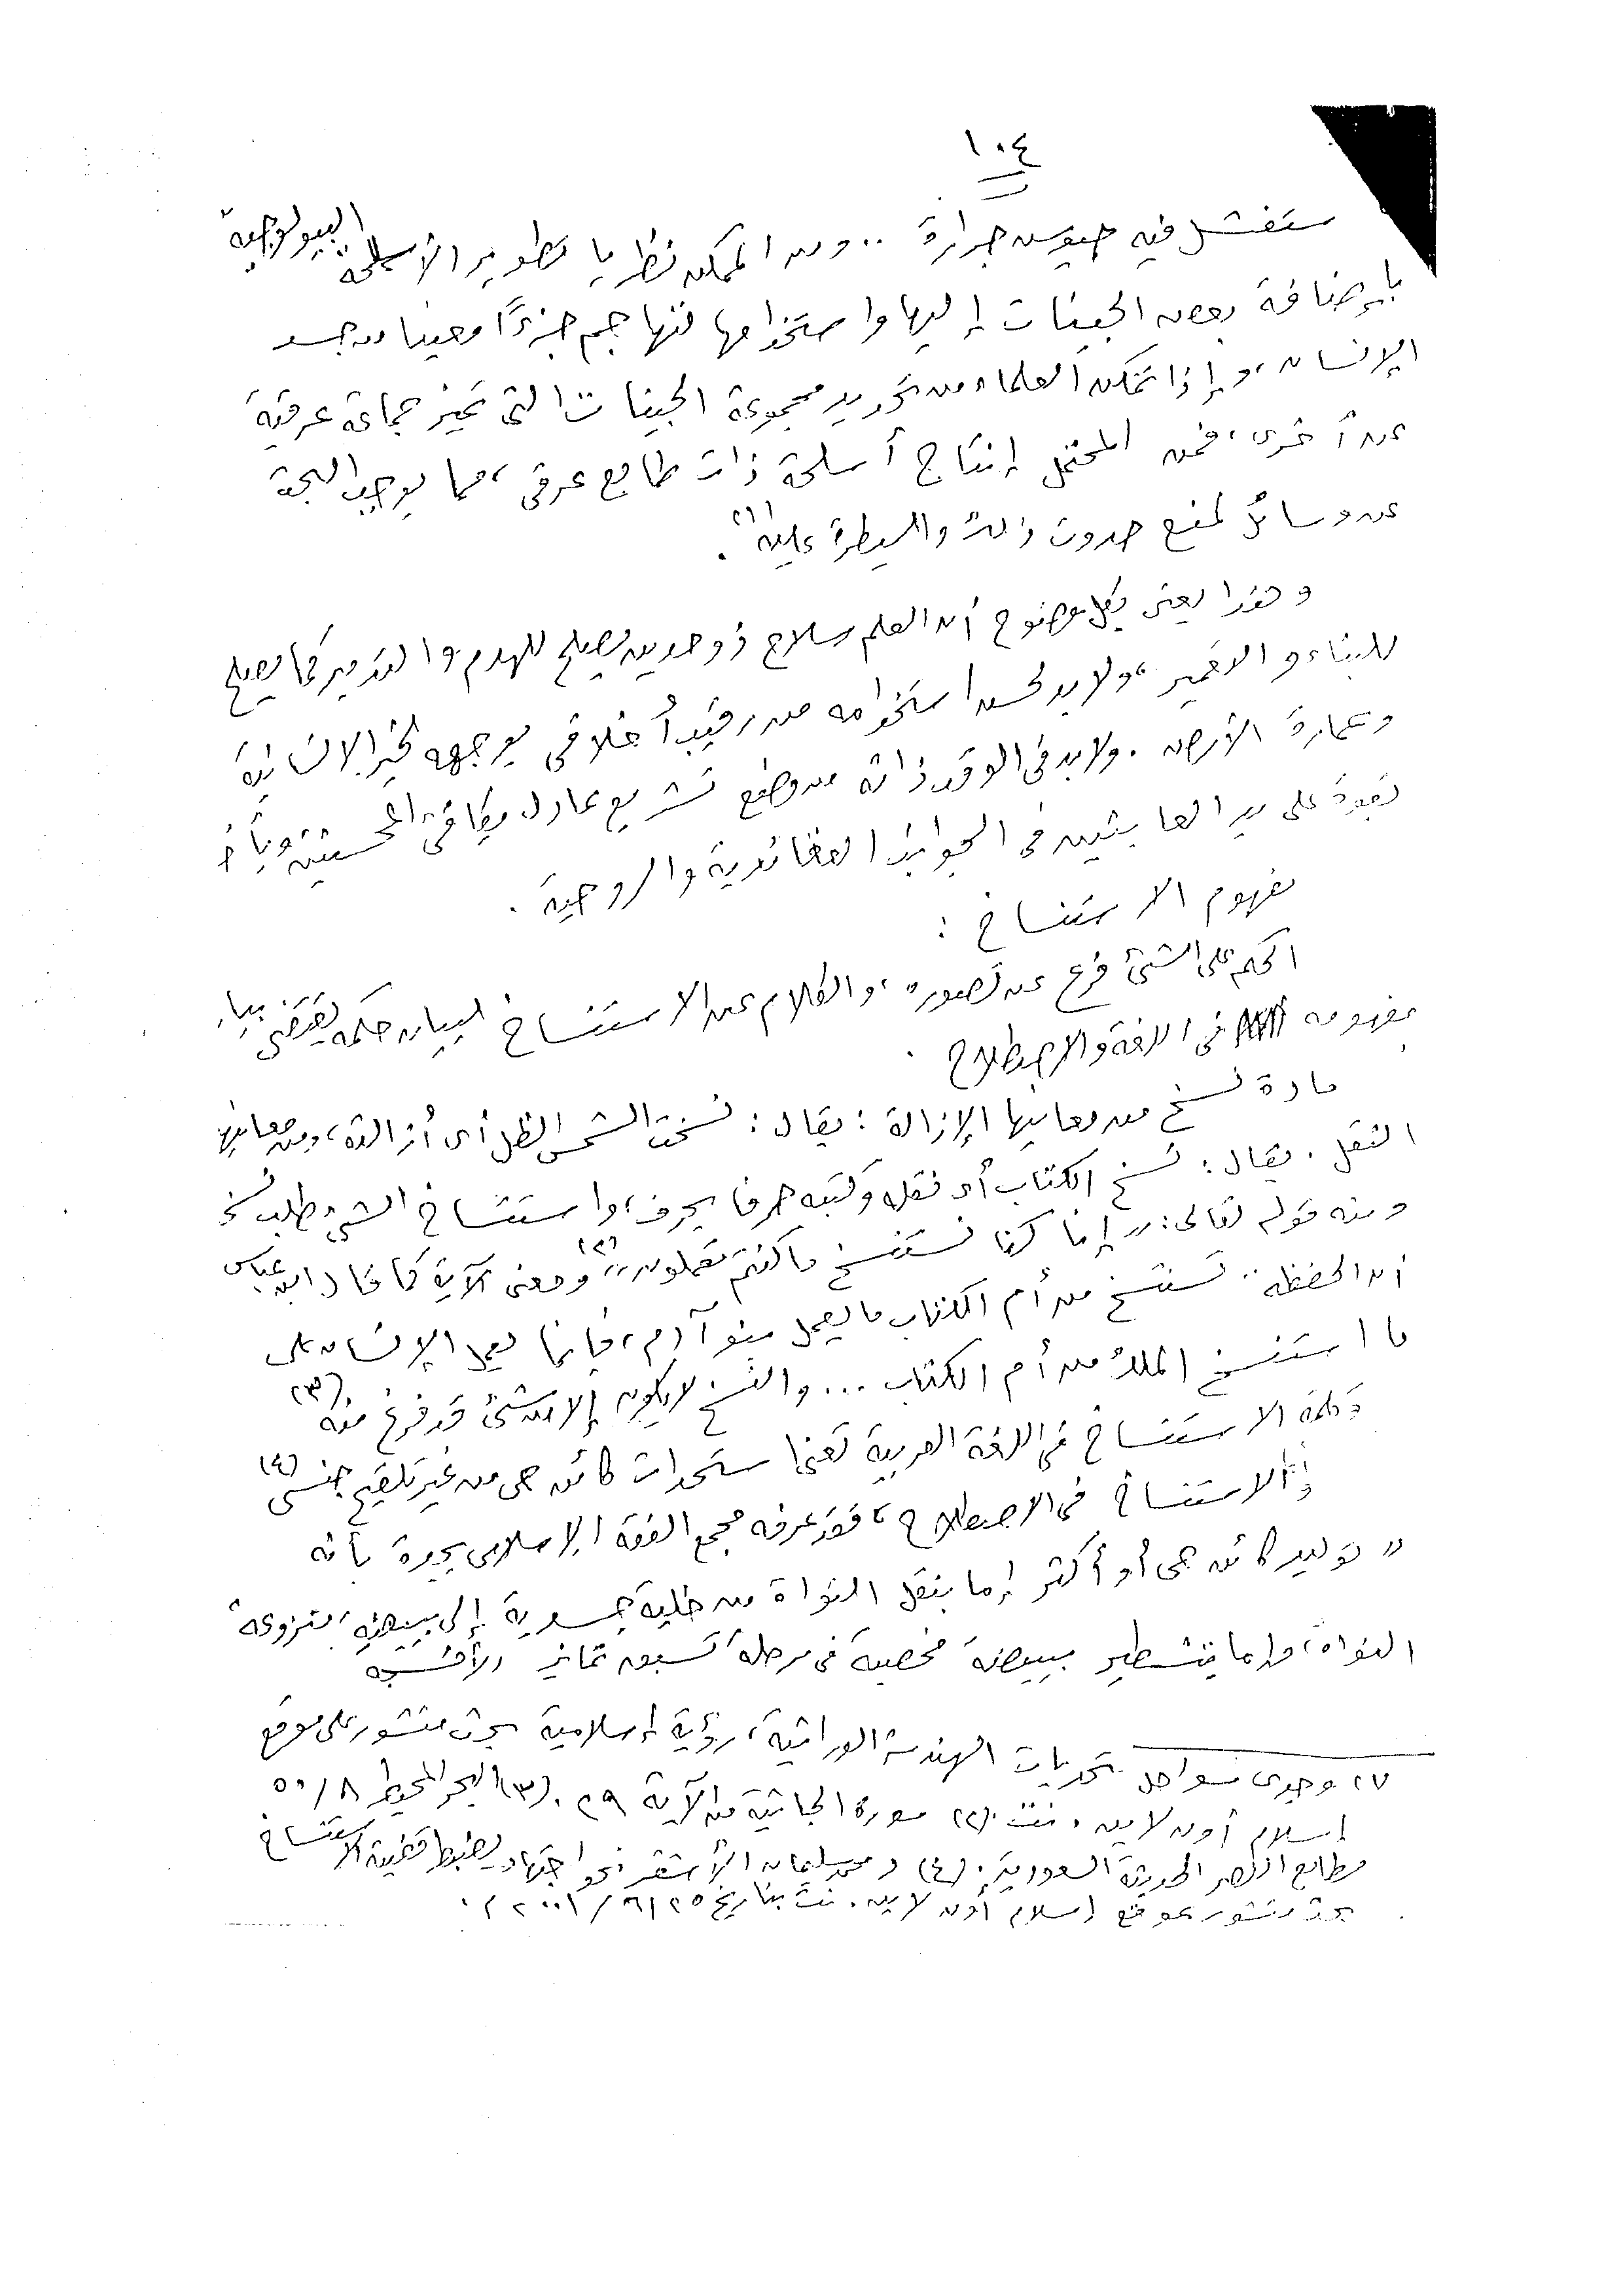 ١٠٤
ستفشل فيه جيوش جرارة .. ومن الممكن نظريا تطوير الأسلحة البيولوجية
بإضافة بعض الجينات إليها واستخدامها فتهاجم جزءًا معينا من جسد
الإنسان، وإذا تمكن العلماء من تحديد مجموعة الجينات التي تميز جماعة عرقية
عن أخرى، فمن المحتمل إنتاج أسلحة ذات طابع عرقى، مما يوجب البحث
عن وسائل لمنع حدوث ذلك والسيطرة عليه (١).
وهذا يعنى بكل وضوح أن العلم سلاح ذو حدين يصلح للهدم والتدمير كما يصلح
للبناء والتعمير، ولابد لحسن استخدامه من رقيب أخلاقى يوجهه لخير الإنسانية
وعمارة الأرض. ولابد فى الوقت ذاته من وضع تشريع عادل يكافئ المحسنين ويأخذ
بقوة على يد العابثين فى الجوانب العقائدية والروحية.
مفهوم الاستنساخ :
الحكم على الشئ فرع عن تصوره، والكلام عن الاستنساخ لبيان حكمه يقتضى بيان
مفهومه فى اللغة والاصطلاح.
مادة نسخ من معانيها الإزالة؛ يقال: نسخت الشمس الظل أى أزالته، ومن معانيها
النقل. يقال: نسخ الكتاب أى نقله وكتبه حرفا بحرف، واستنساخ الشئ طلب نسخه
ومنه قوله تعالى: "إنا كنا نستنسخ ما كنتم تعملون" (٢) ومعنى الآية كما قال ابن عباس
أن الحفظة تستنسخ من أم الكتاب ما يعمل بنو آدم، فإنما يعمل الإنسان على
ما استنسخ الملك من أم الكتاب ... والنسخ لا يكون إلا من شئ قد فرغ منه (٣).
وكلمة الاستنساخ فى اللغة العربية تعنى استحداث كائن حى من غير تلقيح جنسى (٤)
وأما الاستنساخ فى الاصطلاح، فقد عرفه مجمع الفقه الإسلامى بجدة بأنه
"توليد كائن حى أو أكثر إما بنقل النواة من خلية جسدية إلى بييضة منزوعة
النواة، وإما بتشطير بييضة مخصبة فى مرحلة تسبق تمايز الأنسجة
(١) وجدى سواحل تحديات الهندسة الوراثية، رؤية إسلامية بحث منشور على موقع
إسلام أون لاين. نت. (٢) سورة الجاثية من الآية ٢٩. (٣) البحر المحيط ٨/٥٠
مطابع النصر الحديثة السعودية. (٤) د محمد سليمان الأشقر نحو اجتهاد يضبط قضية الاستنساخ
بحث منشور بموقع إسلام أون لاين. نت بتاريخ ٢٥/٦/٢٠٠١م.